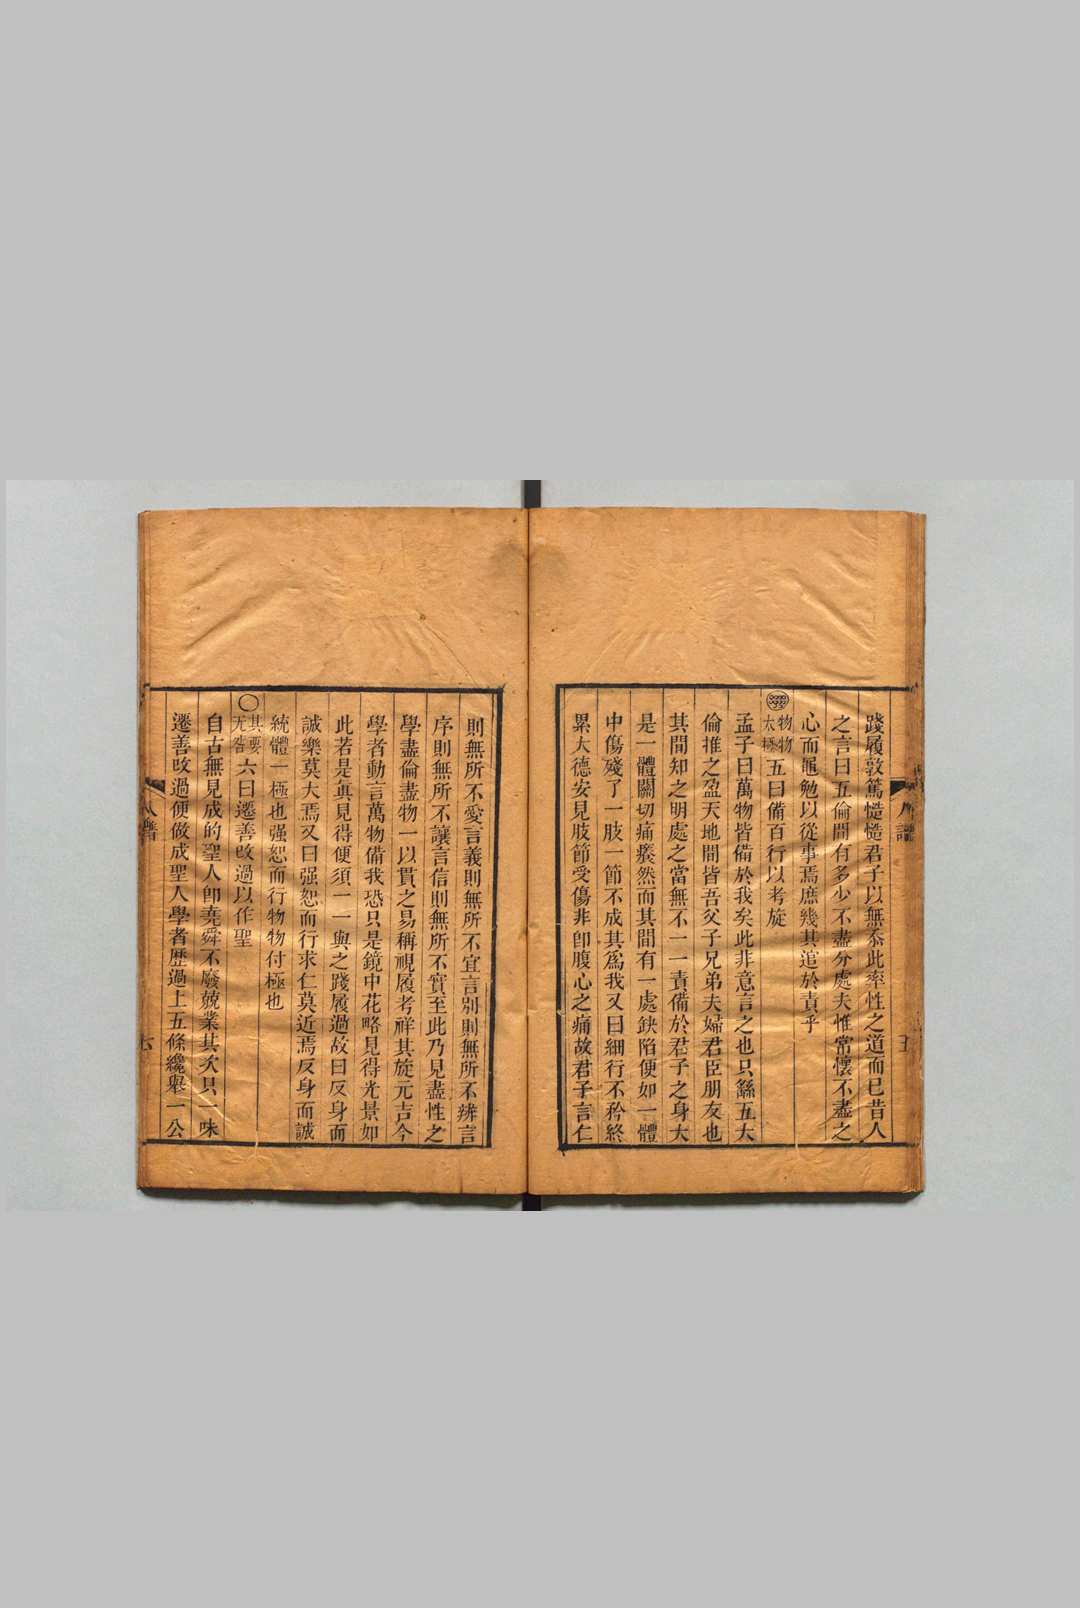 踐履敦篤慥慥君子以無忝此率性之道而已昔人
之言曰五倫間有多少不盡分處夫惟常懷不盡之
心而黽勉以從事焉庶幾其逭於責乎
物物太極五曰備百行以考旋
孟子曰萬物皆備於我矣此非意言之也只繇五大
倫推之盈天地間皆吾父子兄弟夫婦君臣朋友也
其間知之明處之當無不一一責備於君子之身大
是一體關切痛癢然而其間有一處缺陷便如一體
中傷殘了一肢一節不成其爲我又曰細行不矜終
累大德安見肢節受傷非卽腹心之痛故君子言仁
則無所不愛言義則無所不宜言別則無所不辨言
序則無所不讓言信則無所不實至此乃見盡性之
學盡倫盡物一以貫之易稱視履考祥其旋元吉今
學者動言萬物備我恐只是鏡中花略見得光景如
此若是眞見得便須一一與之踐履過故曰反身而
誠樂莫大焉又曰强恕而行求仁莫近焉反身而誠
統體一極也强恕而行物物付極也
其要无咎六曰遷善改過以作聖
自古無見成的聖人卽堯舜不廢兢業其次只一味
遷善改過便做成聖人學者歷過上五條纔舉一公
人譜
七